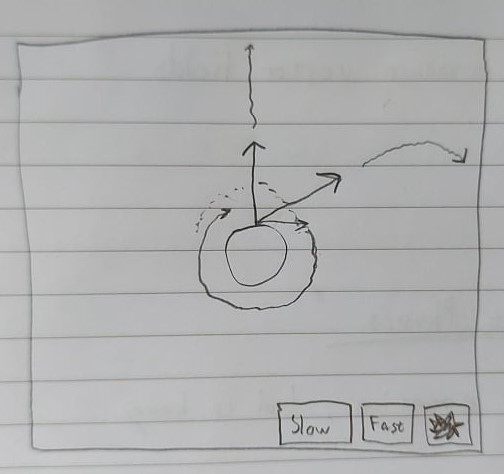 Slow Fast